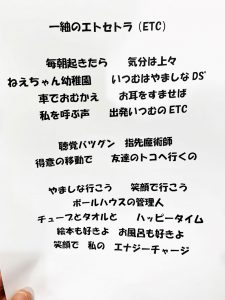 一紬のエトセトラ（ETC）
毎朝起きたら　気分は上々
ねえちゃん幼稚園　いつむはやましなDS'
車でおむかえ　お耳をすませば
私を呼ぶ声　出発いつむのETC
聴覚バツグン　指先魔術師
得意の移動で　友達のトコへ行くの
やましな行こう　笑顔で行こう
ボールハウスの管理人
チューブとタオルと　ハッピータイム
絵本も好きよ　お風呂も好きよ
笑顔で　私の　エナジーチャージ